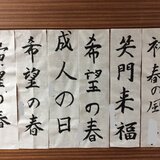 初春の
笑門来福
希望の春
成人の日
希望の春
希望の春